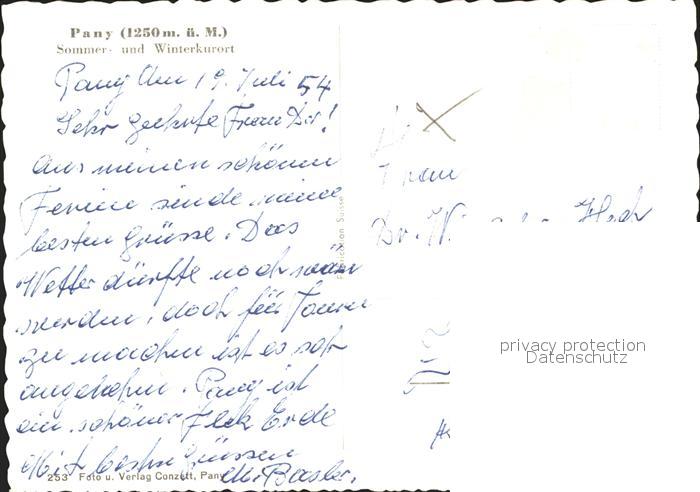 Pany (1250 m. ü. M.)
Sommer- und Winterkurort
Pany den 19. Juli 54
Sehr geehrte Frau Dr.!
Aus meinen schönen
Ferien sende meine
besten Grüsse. Das
Wetter dürfte noch
werden, doch für Touren
zu machen ist es sehr
angenehm. Pany ist
ein schöner Fleck Erde
Mit besten Grüssen
M. Basler.
253 Foto u. Verlag Conzett, Pany
Frau
Dr. W.
privacy protection
Datenschutz